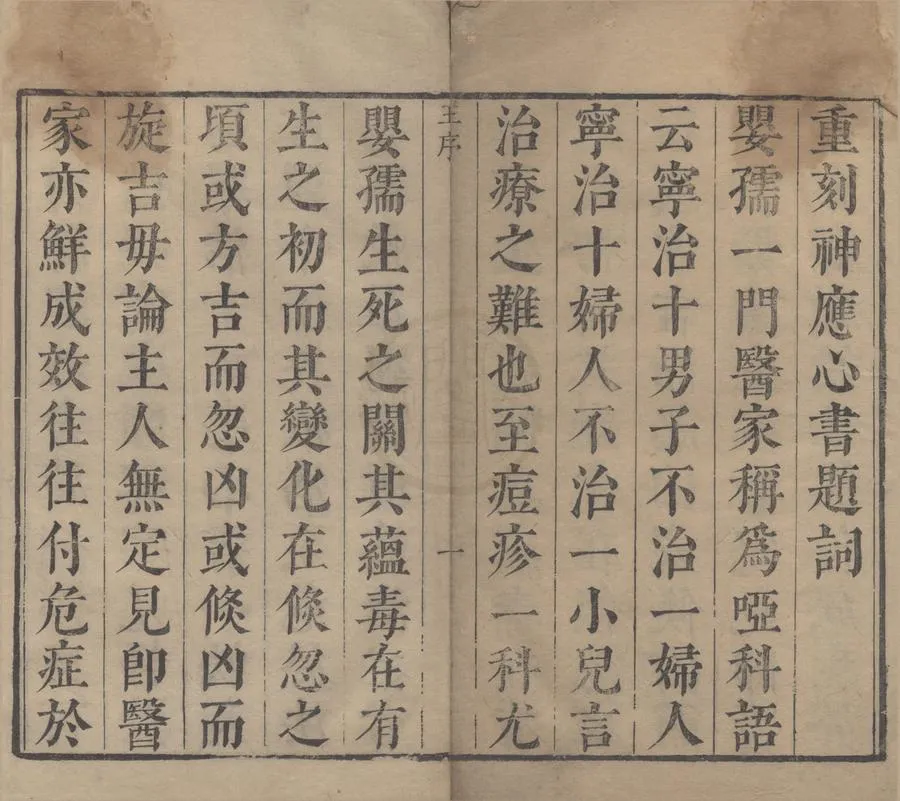 重刻神應心書題詞
嬰孺一門醫家稱爲啞科語
云寧治十男子不治一婦人
寧治十婦人不治一小兒言
治療之難也至痘疹一科尤
王序
一
嬰孺生死之關其蘊毒在有
生之初而其變化在倏忽之
頃或方吉而忽凶或倏凶而
旋吉毋論主人無定見卽醫
家亦鮮成效往往付危症於